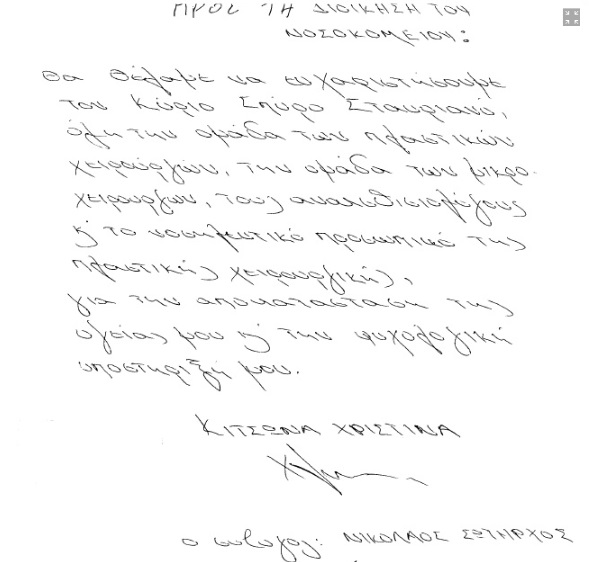 ΠΡΟΣ ΤΗ ΔΙΟΙΚΗΣΗ ΤΟΥ
ΝΟΣΟΚΟΜΕΙΟΥ:
Θα θέλαμε να ευχαριστήσουμε
τον Κύριο Σπύρο Σταυριανό,
όλη την ομάδα των πλαστικών
χειρούργων, την ομάδα των μικρο-
χειρουργών, τους αναισθησιολόγους
κ' το νοσηλευτικό προσωπικό της
πλαστικής χειρουργικής,
για την αποκατάσταση της
υγείας μου κ' την ψυχολογική
υποστηριξή μου.
ΚΙΤΣΩΝΑ ΧΡΙΣΤΙΝΑ
ο συζυγος: ΝΙΚΟΛΑΟΣ